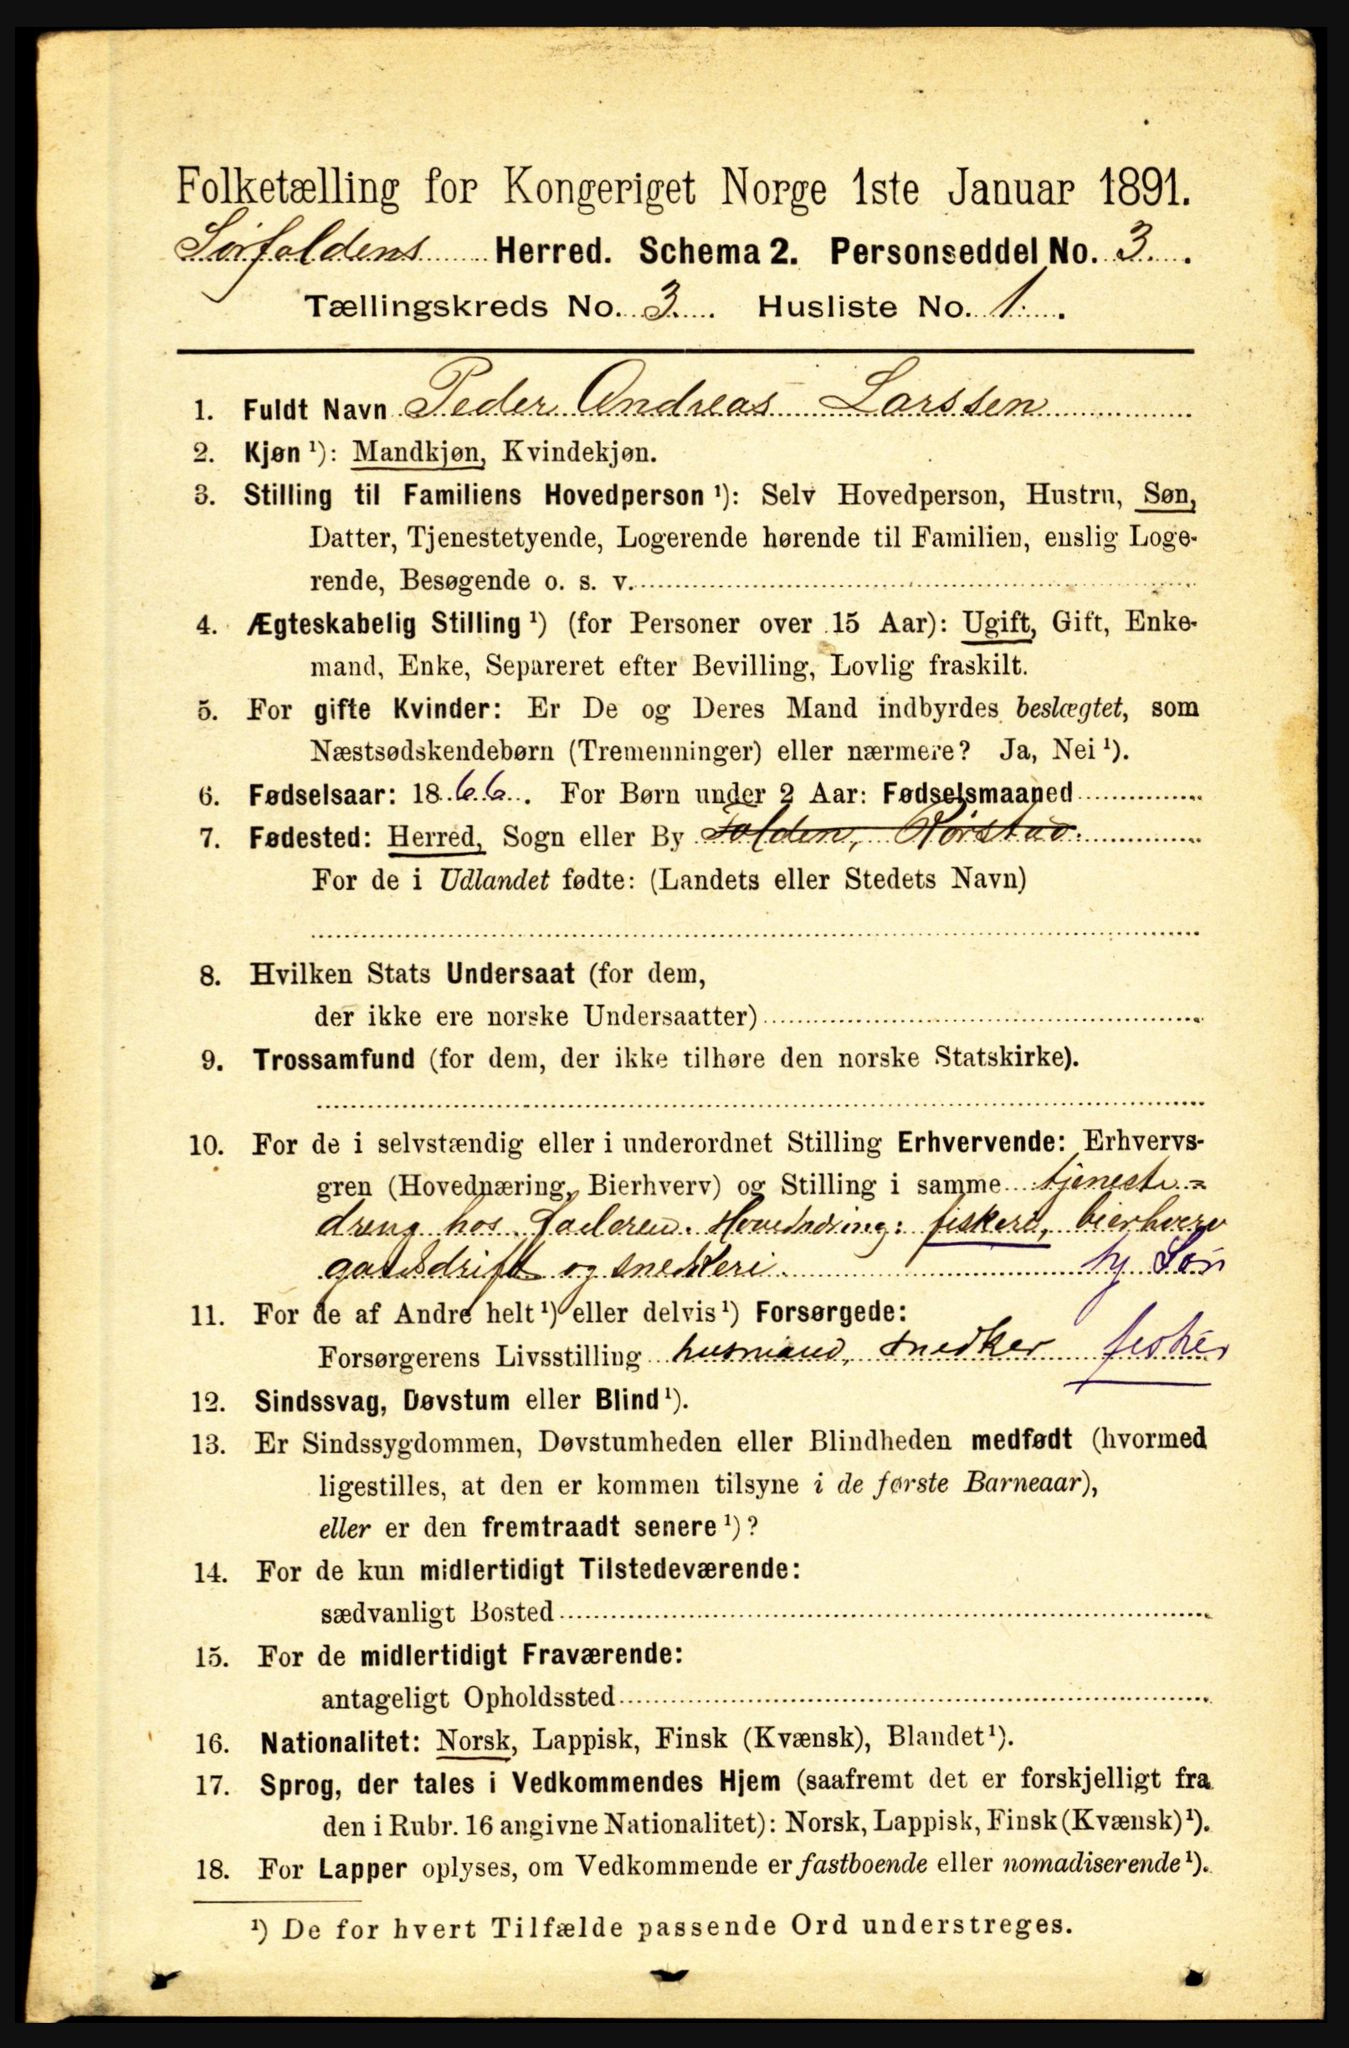 Folketælling for Kongeriget Norge 1ste Januar 1891.
Sørfoldens Herred. Schema 2. Personseddel No. 3.
Tællingskreds No. 3. Husliste No. 1.
1. Fuldt Navn Peder Andreas Larssen
2. Kjøn ¹): Mandkjøn, Kvindekjøn.
3. Stilling til Familiens Hovedperson ¹): Selv Hovedperson, Hustru, Søn,
Datter, Tjenestetyende, Logerende hørende til Familien, enslig Loge-
rende, Besøgende o. s. v.
4. Ægteskabelig Stilling ¹) (for Personer over 15 Aar): Ugift, Gift, Enke-
mand, Enke, Separeret efter Bevilling, Lovlig fraskilt.
5. For gifte Kvinder: Er De og Deres Mand indbyrdes beslægtet, som
Næstsødskendebørn (Tremenninger) eller nærmere? Ja, Nei ¹).
6. Fødselsaar: 1866. For Børn under 2 Aar: Fødselsmaaned
7. Fødested: Herred, Sogn eller By Folden, Rørstad.
For de i Udlandet fødte: (Landets eller Stedets Navn)
8. Hvilken Stats Undersaat (for dem,
der ikke ere norske Undersaatter)
9. Trossamfund (for dem, der ikke tilhøre den norske Statskirke).
10. For de i selvstændig eller i underordnet Stilling Erhvervende: Erhvervs-
gren (Hovednæring, Bierhverv) og Stilling i samme tjeneste=
dreng hos Faderen. Hovednæring: fiskeri, bierhverv
gaardsdrift og snedkeri. hj Søn
11. For de af Andre helt ¹) eller delvis ¹) Forsørgede:
Forsørgerens Livsstilling husmand, snedker fisker
12. Sindssvag, Døvstum eller Blind ¹).
13. Er Sindssygdommen, Døvstumheden eller Blindheden medfødt (hvormed
ligestilles, at den er kommen tilsyne i de første Barneaar),
eller er den fremtraadt senere ¹)?
14. For de kun midlertidigt Tilstedeværende:
sædvanligt Bosted
15. For de midlertidigt Fraværende:
antageligt Opholdssted
16. Nationalitet: Norsk, Lappisk, Finsk (Kvænsk), Blandet ¹).
17. Sprog, der tales i Vedkommendes Hjem (saafremt det er forskjelligt fra
den i Rubr. 16 angivne Nationalitet): Norsk, Lappisk, Finsk (Kvænsk) ¹).
18. For Lapper oplyses, om Vedkommende er fastboende eller nomadiserende ¹).
¹) De for hvert Tilfælde passende Ord understreges.